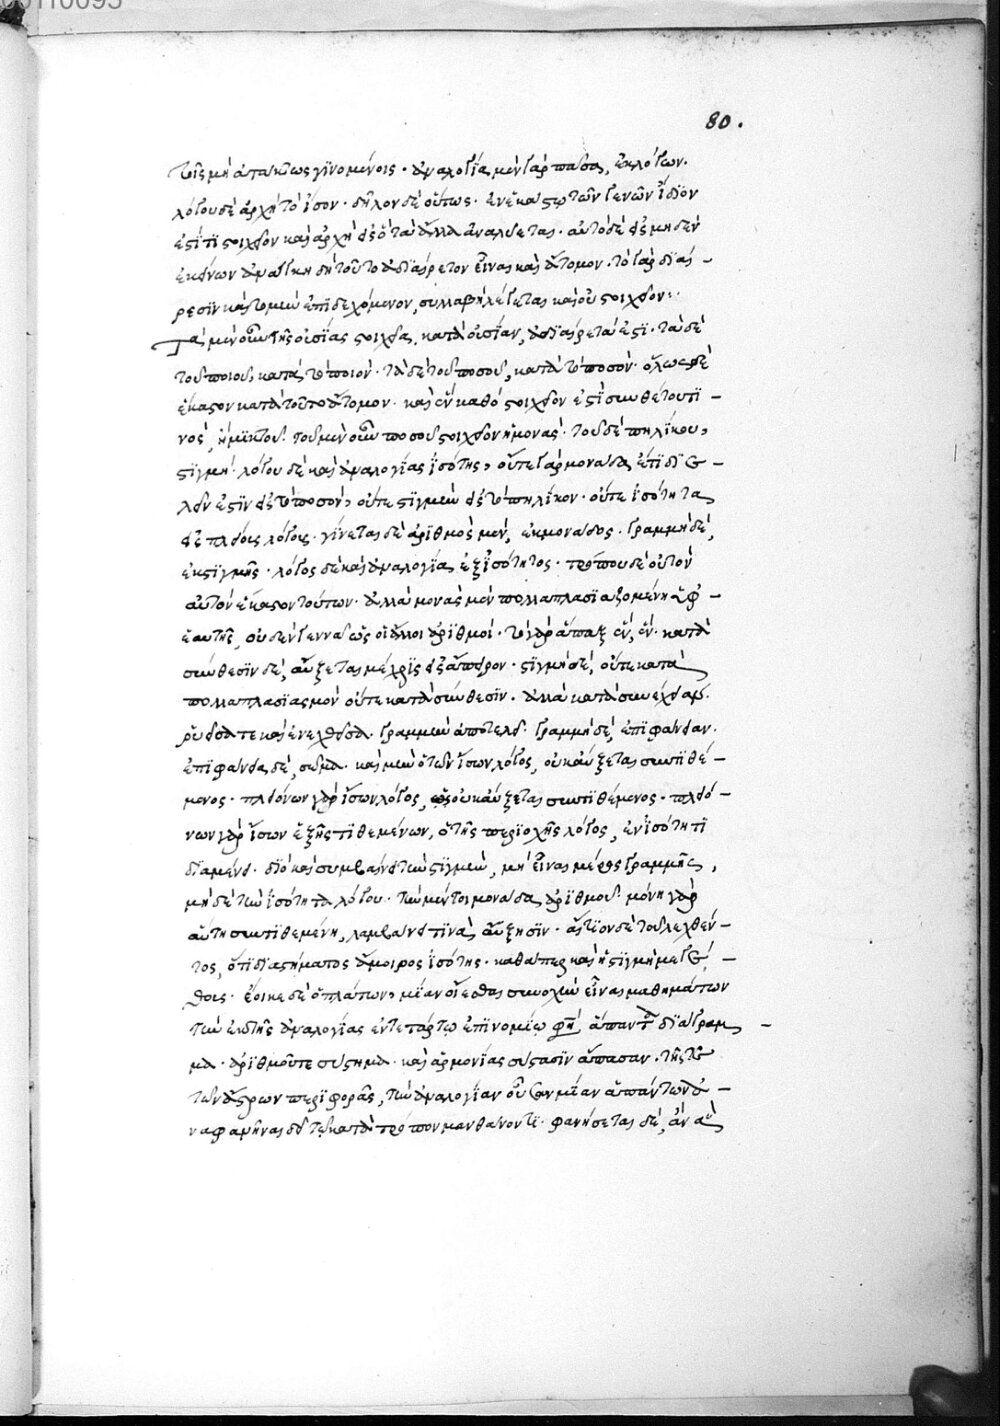 80.
τοῖς μὴ ἀτάκτως γινομένοις· ἀναλογία μὲν γὰρ πᾶσα, ἐκ λόγων.
λόγου δὲ ἀρχὴ τὸ ἴσον· δῆλον δὲ οὕτως· ἐν ἑκάστῳ τῶν γενῶν ἴδιόν
ἐστί τι στοιχεῖον καὶ ἀρχὴ εἰς ὃ τὰ ἄλλα ἀναλύεται· αὐτὸ δὲ εἰς μηδὲν
ἐκείνων ἀνάγκη δὴ τοῦτο ἀδιαίρετον εἶναι καὶ ἄτομον· τὸ γὰρ διαί-
ρεσιν καὶ τομὴν ἐπιδεχόμενον, συλλαβὴ λέγεται καὶ οὐ στοιχεῖον:
Τὰ μὲν οὖν τῆς οὐσίας στοιχεῖα, κατὰ οὐσίαν, ἀδιαίρετά ἐστι· τὰ δὲ
τοῦ ποιοῦ, κατὰ τὸ ποιόν· τὰ δὲ τοῦ ποσοῦ, κατὰ τὸ ποσόν· ὅλως δὲ
ἕκαστον κατὰ τοῦτο ἄτομον· καὶ ἓν καθὸ στοιχεῖόν ἐστι συνθέτου τι-
νὸς, ἢ μικτοῦ· τοῦ μὲν οὖν ποσοῦ στοιχεῖον ἡ μονάς· τοῦ δὲ πηλίκου,
στιγμή· λόγου δὲ καὶ ἀναλογίας ἰσότης, οὔτε γὰρ μονάδα ἔτι διε-
λεῖν ἐστὶν εἰς τὸ ποσόν, οὔτε στιγμὴν εἰς τὸ πηλίκον· οὔτε ἰσότητα
εἰς πλείους λόγους· γίνεται δὲ ἀριθμὸς μὲν, ἐκ μονάδος· γραμμὴ δὲ,
ἐκ στιγμῆς· λόγος δὲ καὶ ἀναλογία ἐξ ἰσότητος· τρόπου δὲ οὐ τὸν
αὐτὸν ἕκαστον τούτων· ἀλλὰ μονὰς μὲν πολλαπλασιαζομένη ὑφ-
ἑαυτῆς, οὐδὲν γεννᾷ ὡς οἱ ἄλλοι ἀριθμοί· τὸ γὰρ ἅπαξ ἓν, ἕν· κατὰ
σύνθεσιν δὲ, αὔξεται μέχρις εἰς ἄπειρον· στιγμὴ δὲ, οὔτε κατὰ
πολλαπλασιασμὸν οὔτε κατὰ σύνθεσιν· ἀλλὰ κατὰ συνέχειαν.
ῥυεῖσά τε καὶ ἐνεχθεῖσα. γραμμὴν ἀποτελεῖ· γραμμὴ δὲ, ἐπιφάνειαν.
ἐπιφάνεια δὲ, σῶμα· καὶ μὴν ὁ τῶν ἴσων λόγος, οὐκ αὔξεται συντιθέ-
μενος· πλειόνων γὰρ ἴσων λόγος, οὐκ αὔξεται συντιθέμενος· πλειό-
νων γὰρ ἴσων ἑξῆς τιθεμένων, ὁ τῆς περιοχῆς λόγος, ἐν ἰσότητι
διαμένει· διὸ καὶ συμβαίνει τὴν στιγμὴν, μὴ εἶναι μέρος γραμμῆς,
μηδὲ τὴν ἰσότητα λόγου· τὴν μέντοι μονάδα ἀριθμοῦ· μόνη γὰρ
αὕτη συντιθεμένη, λαμβάνει τινὰ αὔξησιν· αἴτιον δὲ τοῦ λεχθέν-
τος, ὅτι διαστήματος ἄμοιρος ἰσότης· καθάπερ καὶ ἡ στιγμὴ μεγέ-
θους· ἔοικε δὲ ὁ πλάτων, μίαν οἴεσθαι συνοχὴν εἶναι μαθημάτων
τὴν ἐκ τῆς ἀναλογίας ἔν τε τῷ ἐπινομίῳ φησὶ ἅπαν τὸ διάγραμ-
μα. ἀριθμοῦ τε σύστημα· καὶ ἁρμονίας σύστασιν ἅπασαν. τῆς τε
τῶν ἄστρων περιφορᾶς, τὴν ἀναλογίαν οὖσαν μίαν ἁπάντων ἀ-
ναφανῆναι δεῖ τῷ κατὰ τρόπον μανθάνοντι· φανήσεται δὲ, ἂν αὖ